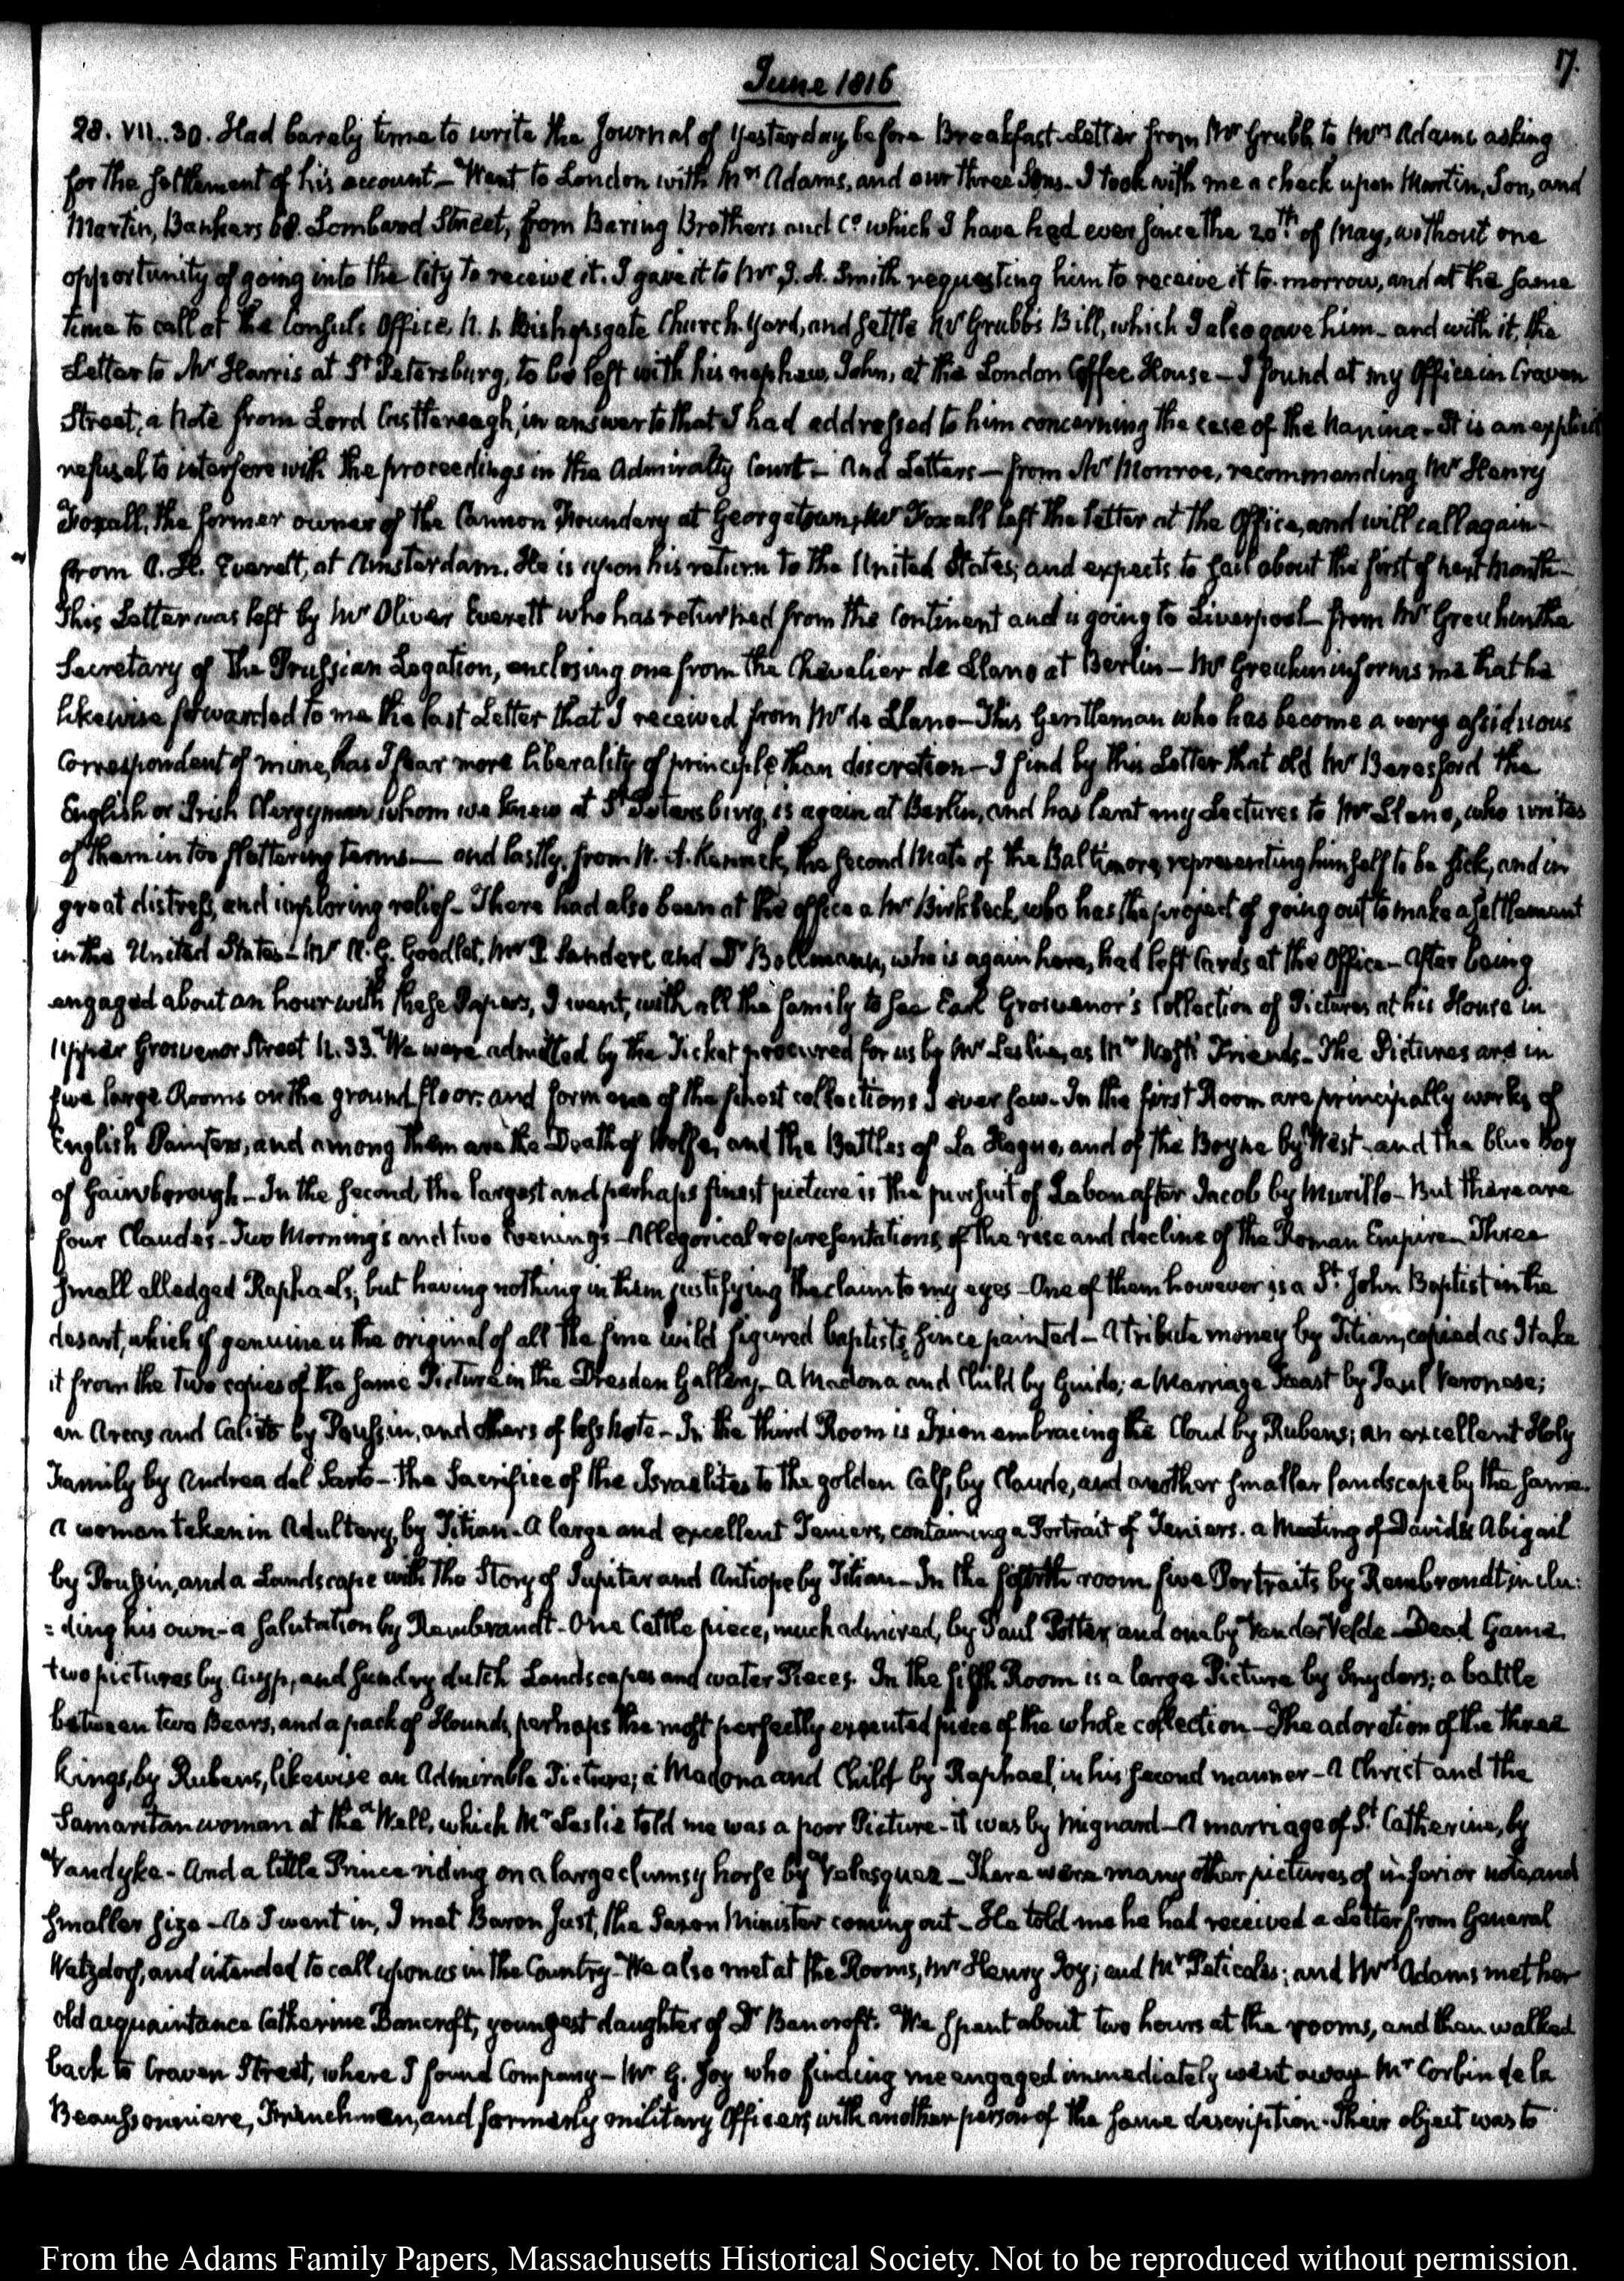 17.
June 1816
28. VII..30. Had barely time to write the Journal of yesterday, before Breakfast. Letter from Mr Grubb to Mrs Adams asking
for the settlement of his account— Went to London with Mrs Adams, and our three Sons. I took with me a check upon Martin, Son, and
Martin, Bankers 68. Lombard Street, from Baring Brothers and Co. which I have had ever since the 20th. of May, without one
opportunity of going into the City to receive it. I gave it to Mr J. A. Smith requesting him to receive it to-morrow, and at the same
time to call at the Consul's Office N. 1. Bishopsgate Church-Yard, and settle Mr Grubb's Bill, which I also gave him— and with it, the
Letter to Mr Harris at St Petersburg, to be left with his nephew, John, at the London Coffee House— I found at my Office in Craven
Street, a Note from Lord Castlereagh, in answer to that I had addressed to him concerning the case of the Nanina— It is an explicit
refusal to interfere with the proceedings in the Admiralty Court— And Letters— from Mr Monroe, recommending Mr Henry
Foxall, the former owner of the Cannon Foundery at Georgetown; Mr Foxall left the letter at the Office, and will call again—
from A. H. Everett, at Amsterdam. He is upon his return to the United States, and expects to sail about the first of next Month—
This Letter was left by Mr Oliver Everett who has returned from the Continent and is going to Liverpool— from Mr Greuhm the
Secretary of the Prussian Legation, enclosing one from the Chevalier de Llano at Berlin— Mr Greuhm informs me that he
likewise forwarded to me the last Letter that I received from Mr de Llano— This Gentleman who has become a very assiduous
Correspondent of mine, has I fear more liberality of principle than discretion— I find by this Letter that old Mr Beresford the
English or Irish Clergyman whom we knew at St Petersburg, is again at Berlin, and has lent my Lectures to Mr Llano, who writes
of them in too flattering terms— and lastly, from W. A. Kennick, the second Mate of the Baltimore, representing himself to be sick, and in
great distress, and imploring relief— There had also been at the office a Mr Birkbeck, who has the project of going out to make a settlement
in the United States— Mr R. G. Goodlet, Mr P. Sanders, and Dr Bollmann, who is again here, had left Cards at the Office— After being
engaged about an hour with these Papers, I went, with all the family to see Earl Grosvenor's Collection of Pictures at his House in
Upper Grosvenor Street N. 33. We were admitted by the Ticket procured for us by Mr Leslie, as Mr West's Friends— The Pictures are in
five large Rooms on the ground floor; and form one of the finest collections I ever saw— In the first Room are principally works of
English Painters, and among them are the Death of Wolfe, and the Battles of La Hogue, and of the Boyne by West— and the blue Boy
of Gainsborough— In the second, the largest and perhaps finest picture is the pursuit of Laban after Jacob by Murillo— But there are
four Claudes— Two Mornings and two Evenings— Allegorical representations of the rise and decline of the Roman Empire— Three
small alledged Raphaels; but having nothing in them justifying the claim to my eyes— One of them however is a St. John Baptist in the
desart, which if genuine is the original of all the fine wild figured baptists since painted— A tribute money by Titian, copied as I take
it from the two copies of the same Picture in the Dresden Gallery— A Madona and Child by Guido; a Marriage Feast by Paul Veronese;
an Arcas and Calisto by Poussin, and others of less note— In the third Room is Ixion embracing the Cloud by Rubens; an excellent Holy
Family by Andrea del Sarto— The Sacrifice of the Israelites to the golden Calf, by Claude, and another smaller landscape by the same.
A woman taken in Adultery, by Titian— A large and excellent Teniers, containing a Portrait of Teniers. a Meeting of David & Abigail
by Poussin, and a Landscape with the Story of Jupiter and Antiope by Titian— In the fourth room five Portraits by Rembrandt, inclu:
:ding his own— a salutation by Rembrandt— One Cattle piece, much admired, by Paul Potter, and one by Van der Velde— Dead Game.
two pictures by Cuyp, and sundry dutch Landscapes and water Pieces. In the fifth Room is a large Picture by Snyders; a battle
between two Bears, and a pack of Hounds, perhaps the most perfectly executed piece of the whole collection— The adoration of the three
kings, by Rubens, likewise an Admirable Picture; a Madona and Child by Raphael, in his second manner— A Christ and the
Samaritan woman at the Well, which Mr Leslie told me was a poor Picture— it was by Mignard— A marriage of St Catherine, by
Vandyke— And a little Prince riding on a large clumsy horse by Velasquez— There were many other pictures of inferior note, and
smaller size— As I went in, I met Baron Just, the Saxon Minister coming out— He told me he had received a Letter from General
Watzdorf, and intended to call upon us in the Country— We also met at the Rooms, Mr Henry Joy; and Mr Peticolas; and Mrs Adams met her
old acquaintance Catherine Bancroft, youngest daughter of Dr Bancroft. We spent about two hours at the rooms, and then walked
back to Craven Street, where I found Company— Mr G. Joy who finding me engaged immediately went away— Mr Corbin de la
Beaussonniere, Frenchmen, and formerly military Officers, with another person of the same description. Their object was to
From the Adams Family Papers, Massachusetts Historical Society. Not to be reproduced without permission.